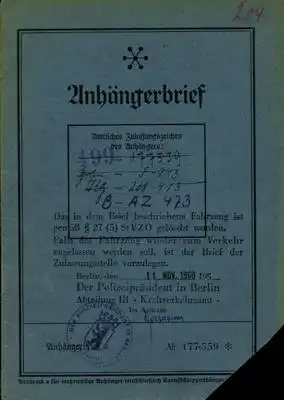 204
Anhängerbrief
Amtliches Zulassungszeichen
des Anhängers:
B-AZ 473
Das in dem Brief beschriebene Fahrzeug ist
gem §§ 27 (5) StVZO gelöscht worden.
Falls das Fahrzeug wieder zum Verkehr
zugelassen werden soll, ist der Brief der
Zulassungsstelle vorzulegen.
Berlin, den 11. NOV. 1960 195
Der Polizeipräsident in Berlin
Abteilung III - Kraftverkehrsamt -
Im Auftrage
Anhänger
№ 177559 *